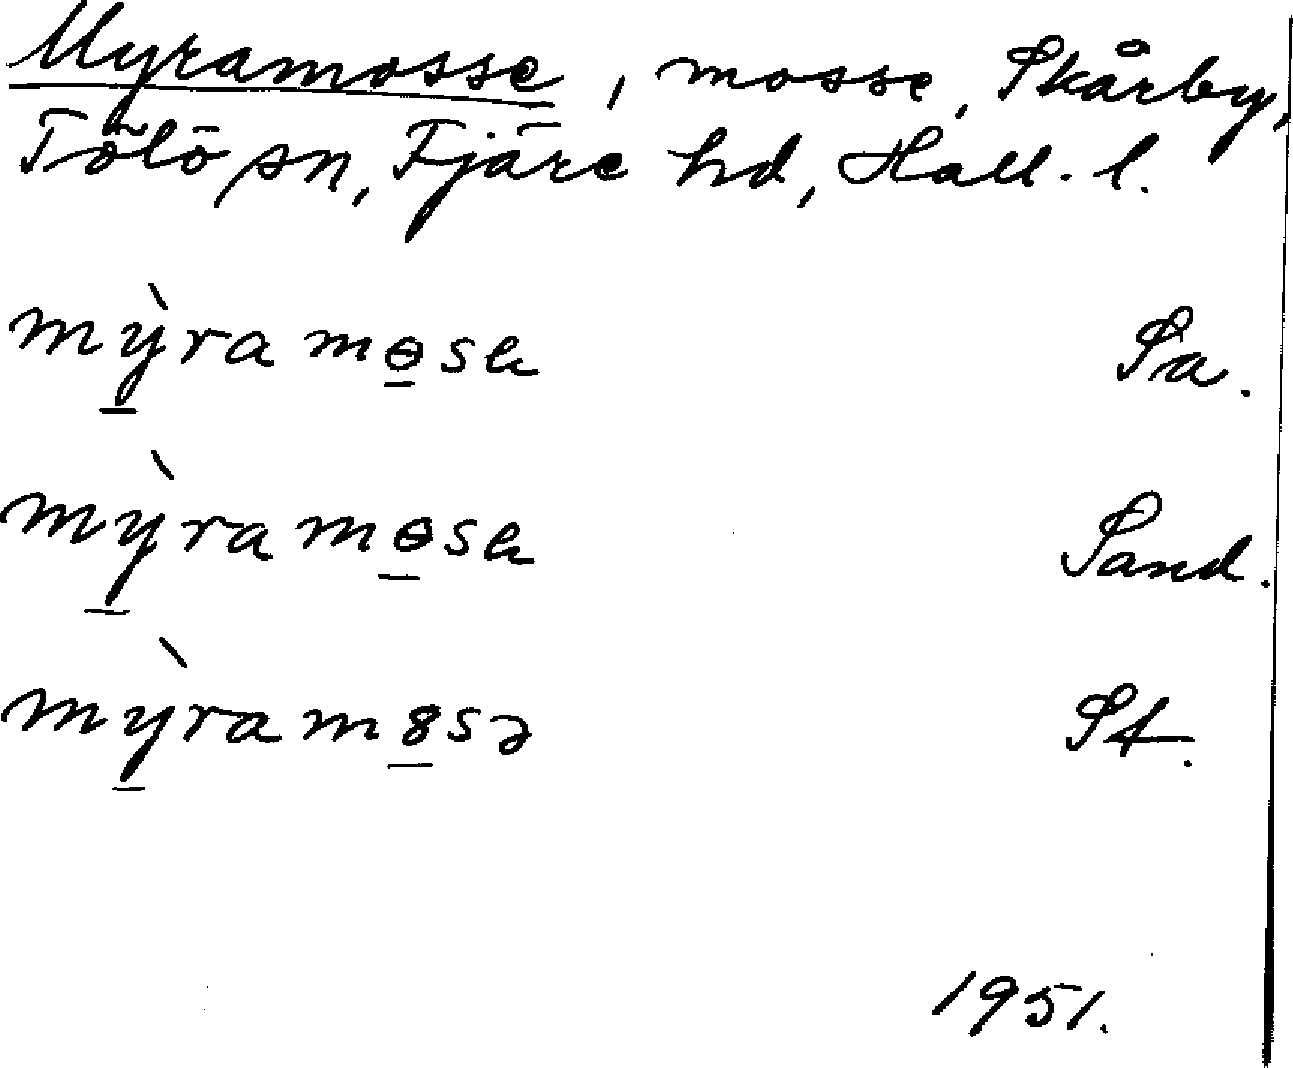 Myramosse, mosse, Skårby,
Tölö sn, Fjäre hd, Hall. l.
mỳramɵsе Sa.
mỳramɵsе Sand.
mỳram8sə St.
1951.